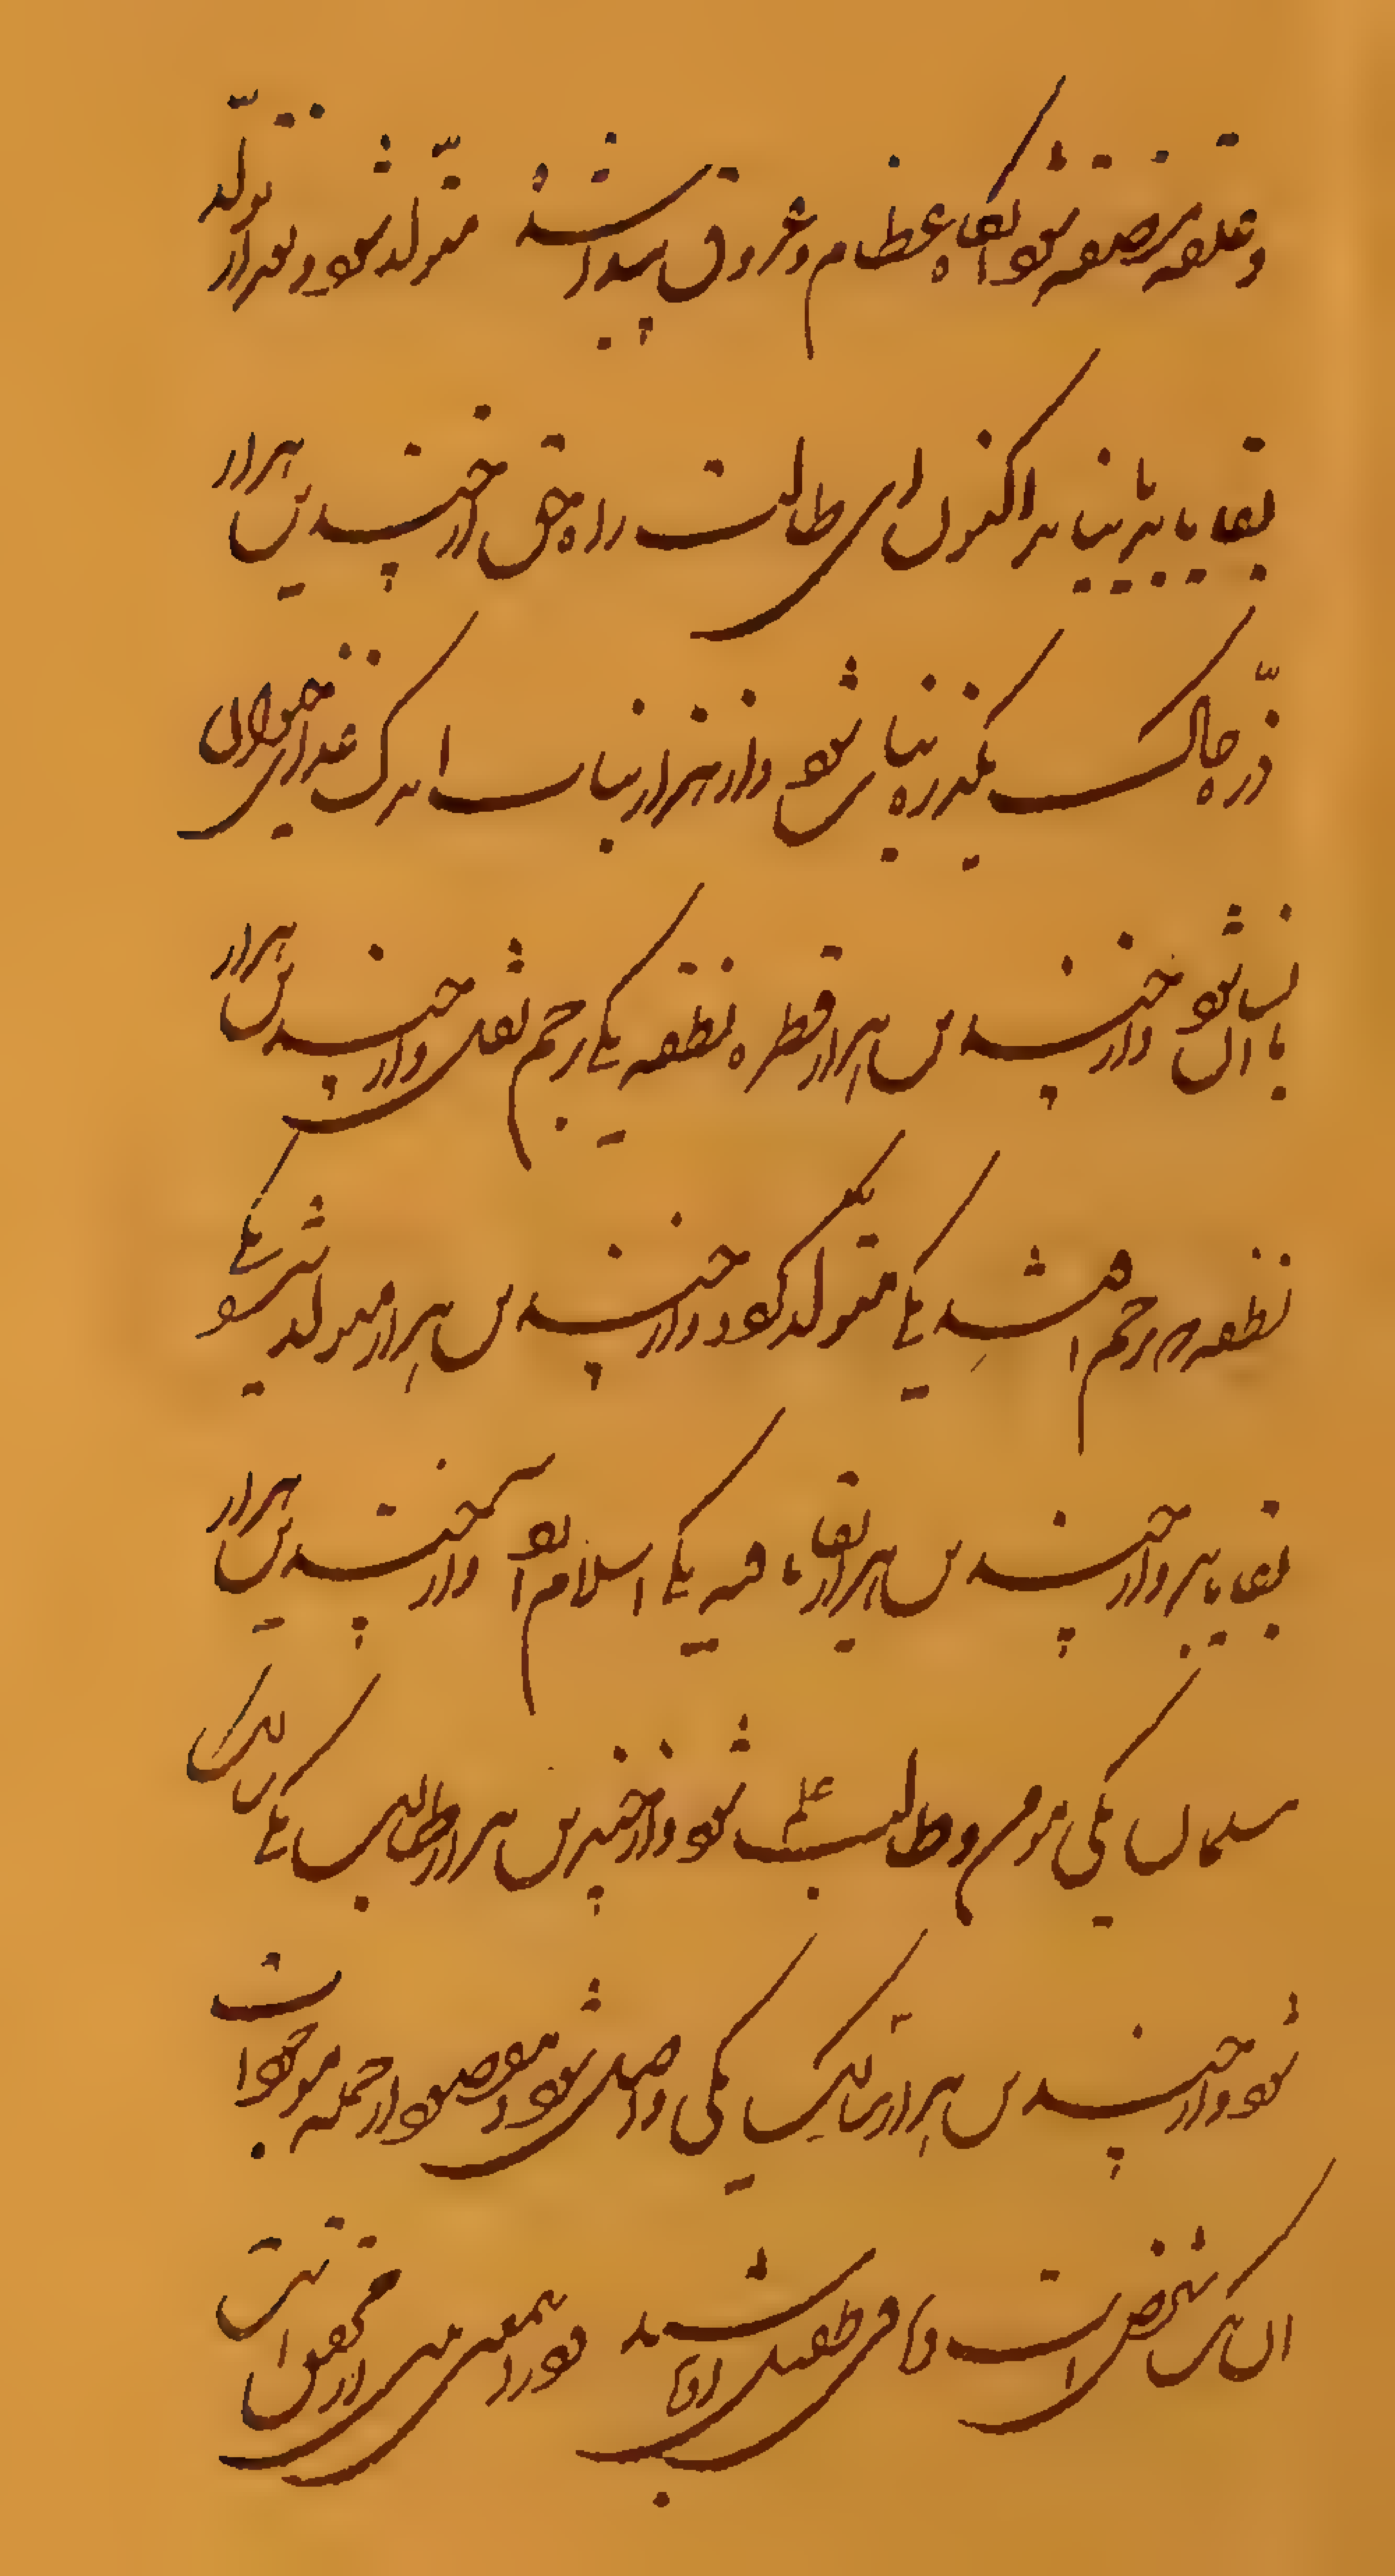 و علقه مضغه شود آنگاه عظام و عروق پیدا شده متولد شود و بعد از تولد
بقا یابد یا نیابد اکنون ای طالب راه حق از چندین هزار
ذره خاک یکذره نباتی شود و از هزار نبات اندکی غذای حیوان
یا انسان شود و از چندین هزار قطره نطفه یکی برحم نقل و از چندین هزار
نطفه در رحم افتد یکی متولد گردد و از چندین هزار مولد شده یکی
بقا یابد و از چندین هزار بقا یافته یکی اسلام آورد و از چندین هزار
مسلمان یکی مؤمن و طالب علم شود و از چندین هزار طالب یکی سالک
شود و از چندین هزار سالک یکی واصل شود و مقصود از جمله موجودات
آن یک شخص است و باقی طفیل اویند و در این معنی از محققان است